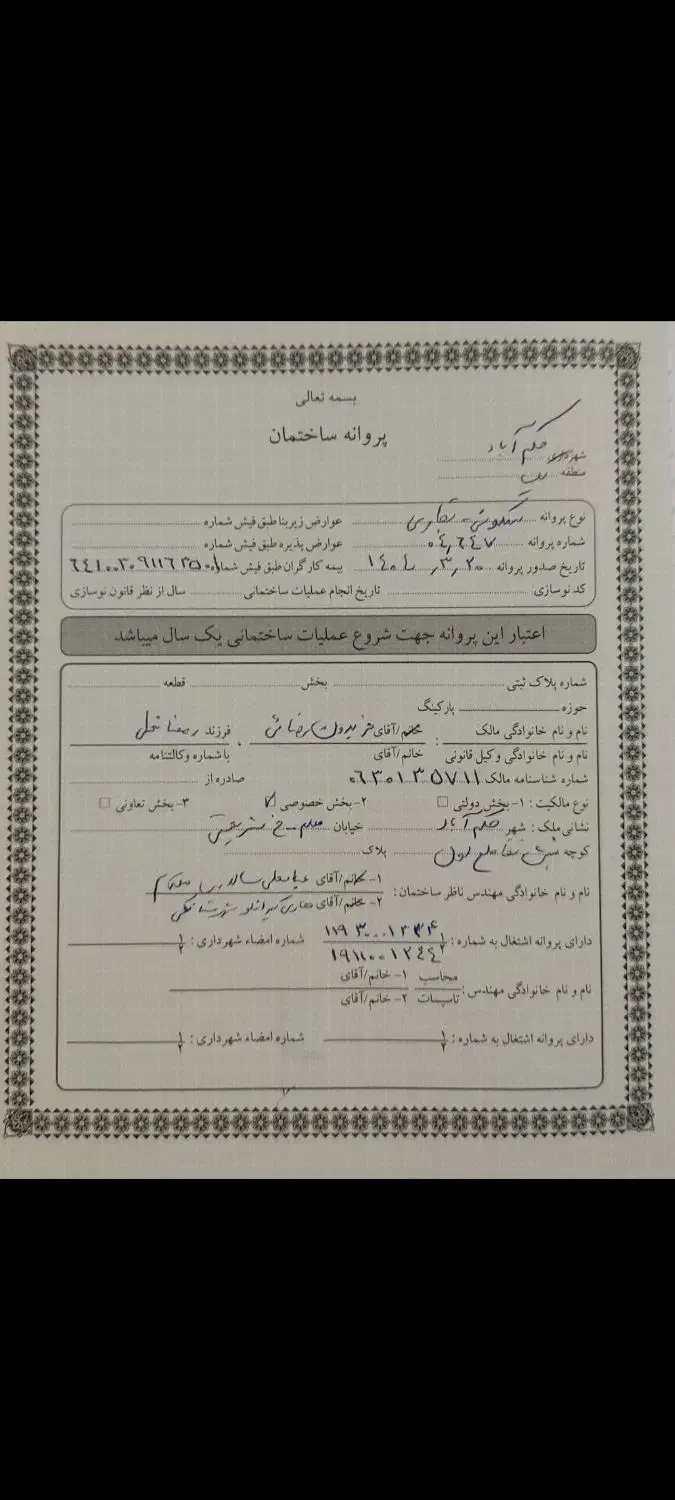 بسمه تعالی
پروانه ساختمان
شهرداری حکم آباد
منطقه
نوع پروانه مسکونی - تجاری عوارض زیربنا طبق فیش شماره
شماره پروانه ۰۴,۶۴۷ عوارض پذیره طبق فیش شماره
تاریخ صدور پروانه ۱۴۰۴,۳,۲۰ بیمه کارگران طبق فیش شماره
کد نوسازی تاریخ انجام عملیات ساختمانی سال از نظر قانون نوسازی
اعتبار این پروانه جهت شروع عملیات ساختمانی یک سال میباشد
شماره پلاک ثبتی بخش قطعه
حوزه پارکینگ
نام و نام خانوادگی مالک : خانم/آقای فریدون فرزند رمضانعلی
نام و نام خانوادگی وکیل قانونی خانم/آقای با شماره وکالتنامه
شماره شناسنامه مالک ۰۶۳۰۱۳۵۷۱۱ صادره از
نوع مالکیت : ۱- بخش دولتی ۲- بخش خصوصی ۳- بخش تعاونی
نشانی ملک : شهر حکم آباد خیابان معلم
کوچه نبش تقاطع اول پلاک
۱- خانم/آقای
نام و نام خانوادگی مهندس ناظر ساختمان :
۲- خانم/آقای
دارای پروانه اشتغال به شماره : ۱ شماره امضاء شهرداری : ۱
۲ ۱۹۱۱۰۰۱۲۴۴ ۲
محاسب ۱- خانم/آقای
نام و نام خانوادگی مهندس :
تاسیسات ۲- خانم/آقای
دارای پروانه اشتغال به شماره : ۱ شماره امضاء شهرداری : ۱
۲ ۲